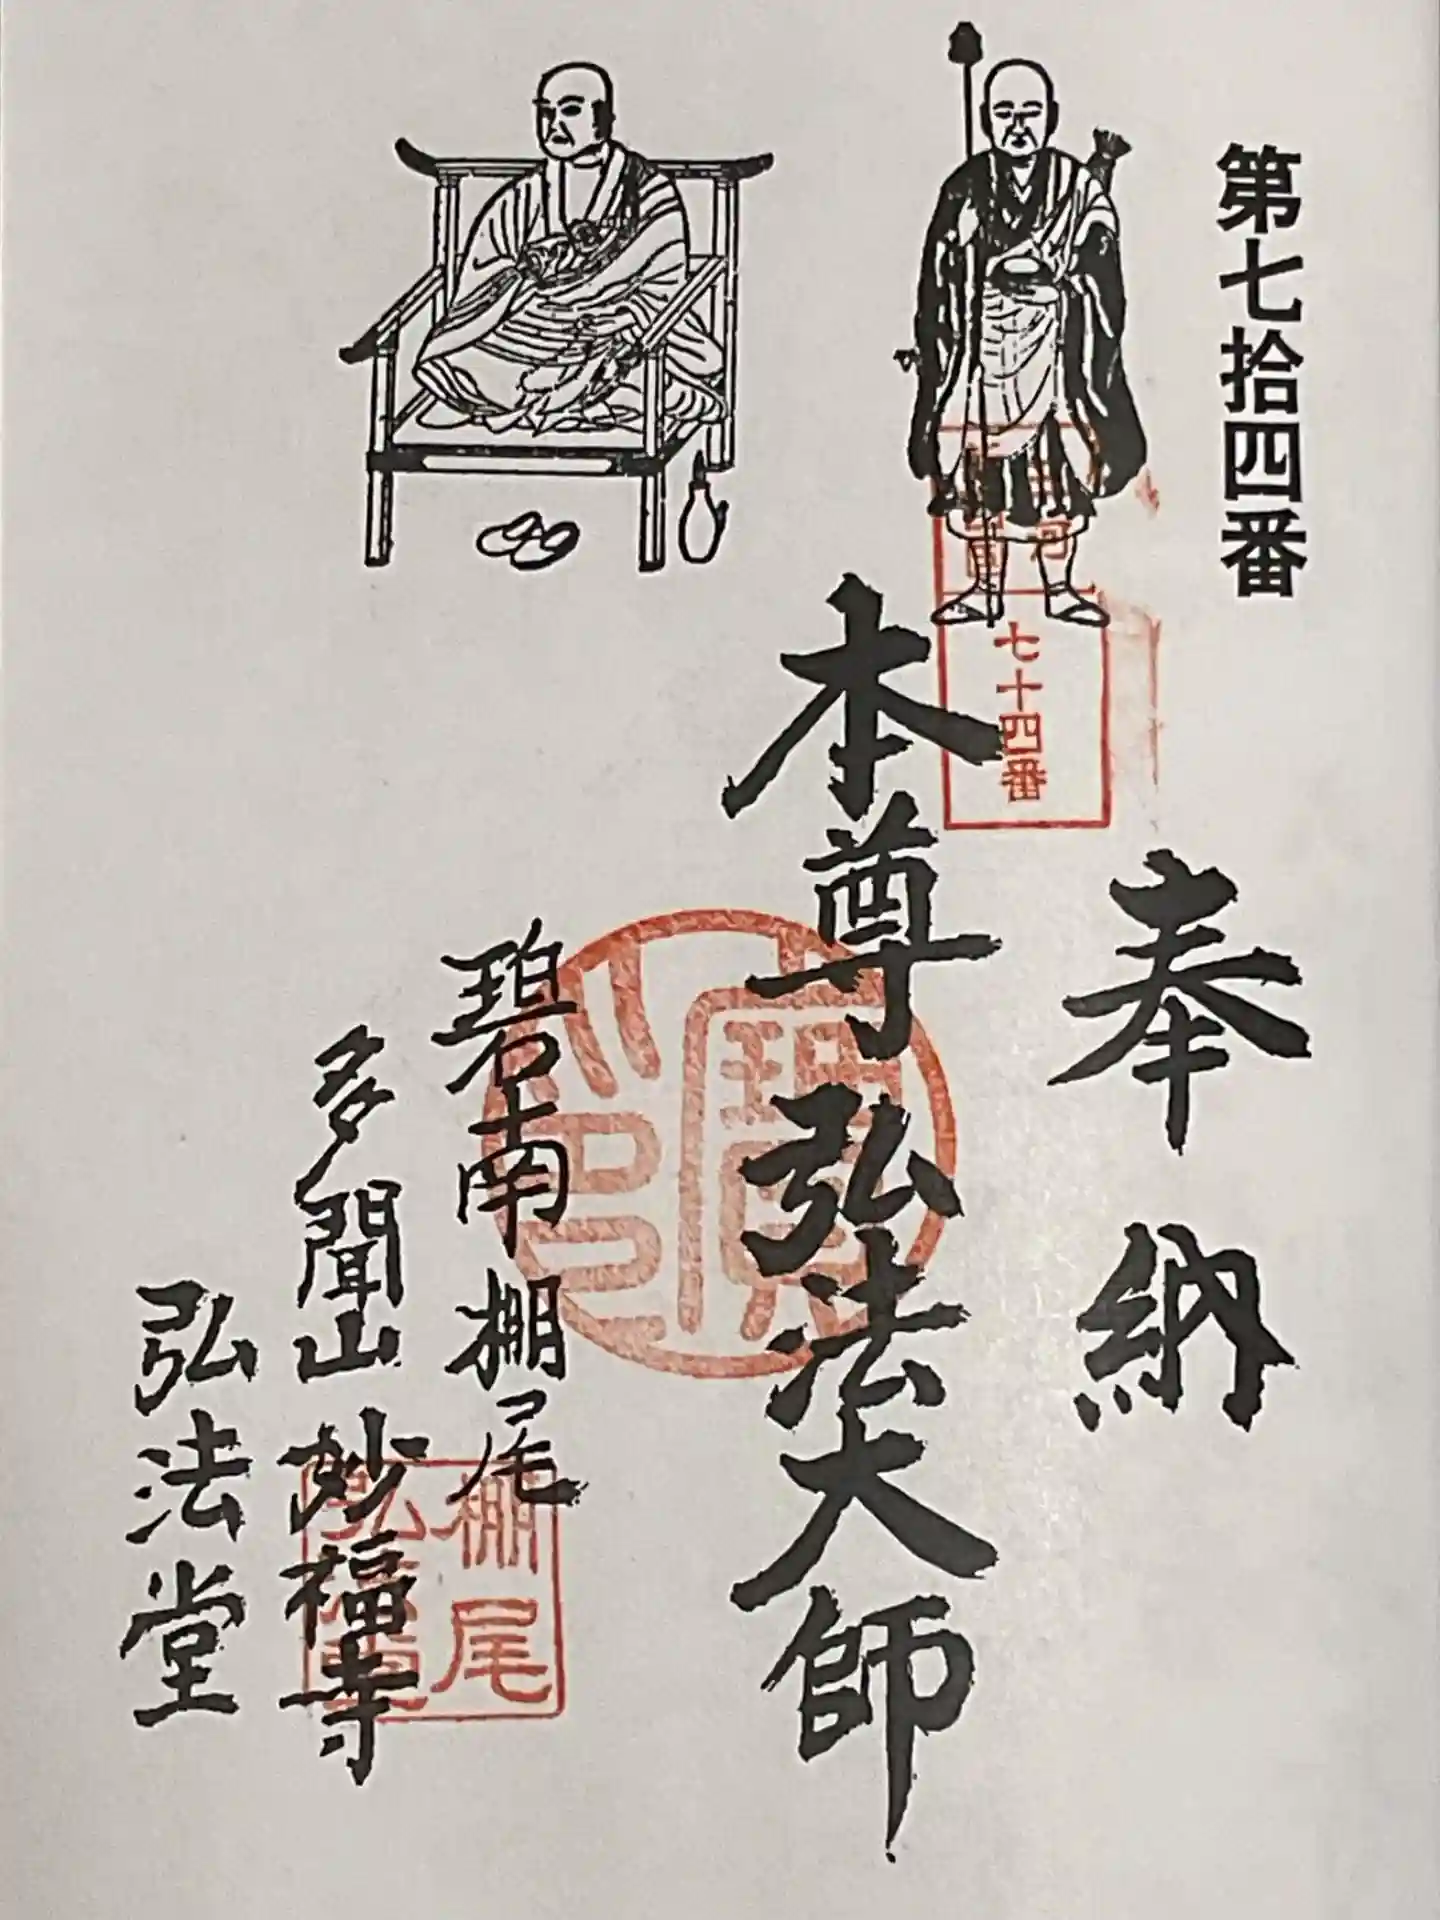 第七拾四番
奉納
七十四番
本尊弘法大師
碧南棚尾
多聞山妙福寺
弘法堂
棚尾